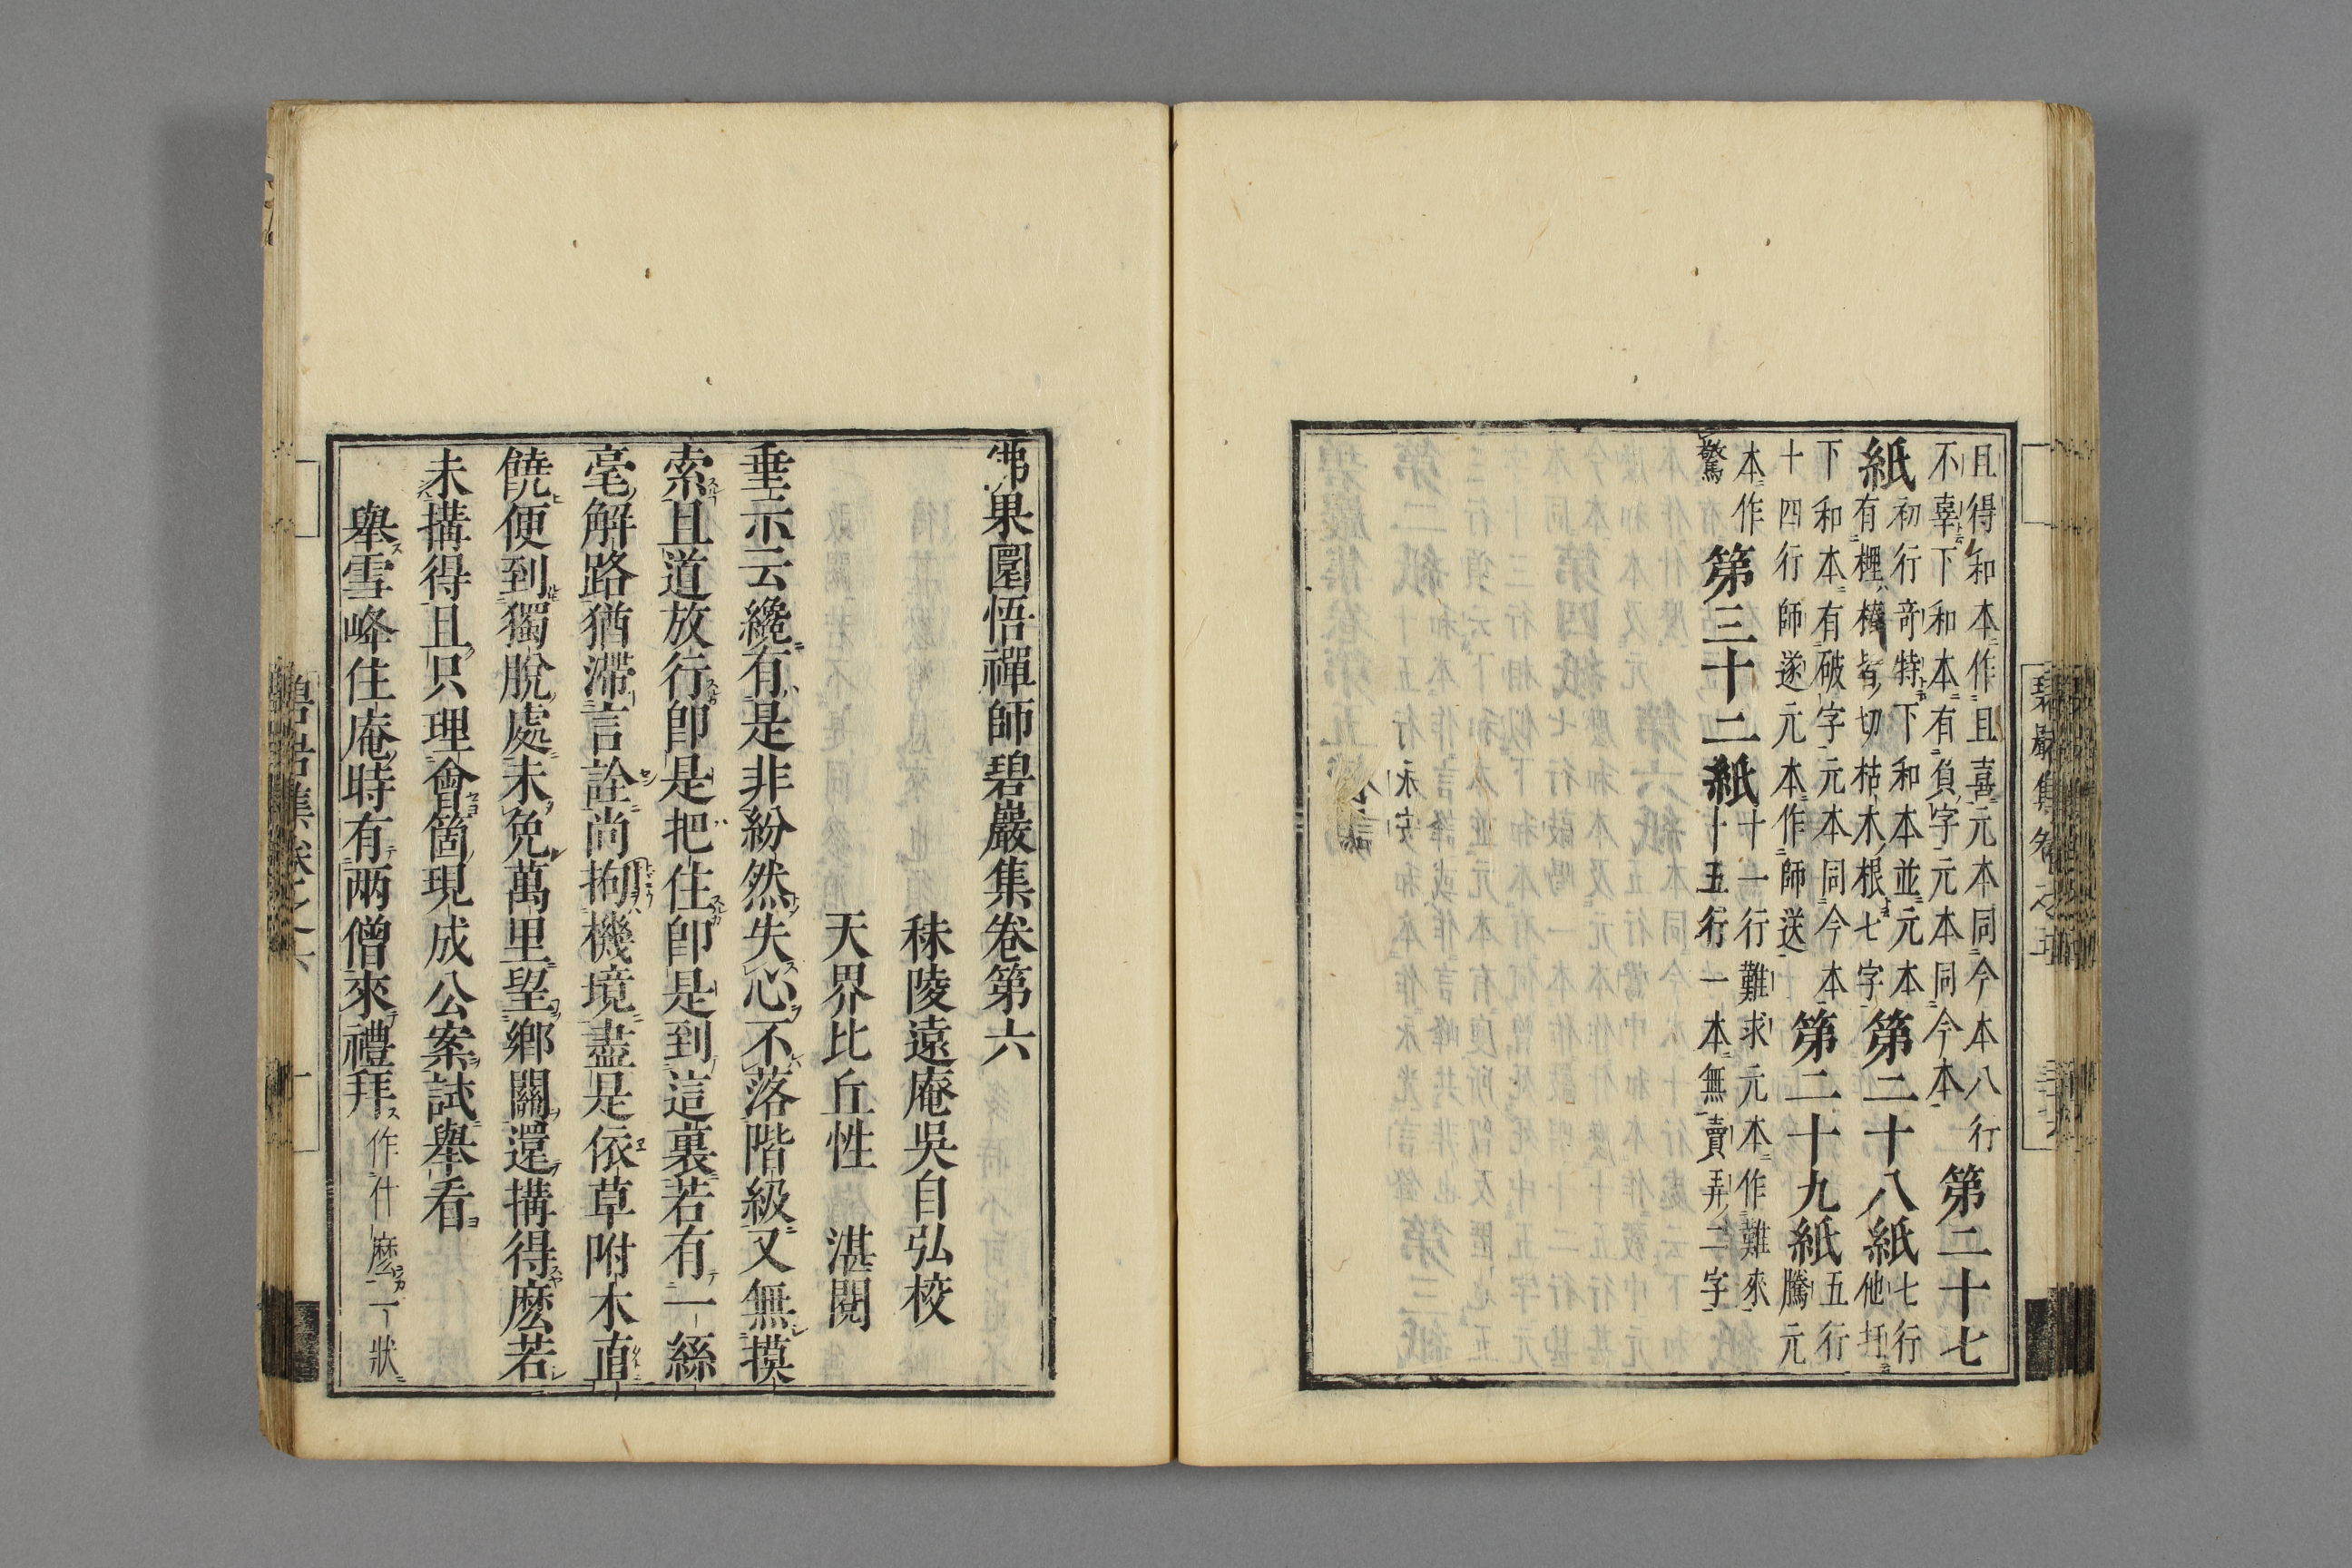 且得和本作且喜元本同今本八行
第二十七
不辜下和本有負字元本同今本
紙
初行奇特下和本並元本
有極樁皆切枯木根七字
第二十八紙
七行
他打
下和本有破字元本同今本
十四行師遂元本作師送
第二十九紙
五行
騰元
本作
驚
第三十二紙
十一行難求元本作難來
十五行一本無賣弄二字
碧巖集卷之五
佛果圜悟禪師碧巖集卷第六
秣陵遠庵吳自弘校
天界比丘性湛閱
垂示云纔有是非紛然失心不落階級又無摸
索且道放行卽是把住卽是到這裏若有一絲
毫解路猶滯言詮尚拘機境盡是依草附木直
饒便到獨脫處未免萬里望鄕關還搆得麽若
未搆得且只理會箇現成公案試舉看
舉雪峰住庵時有兩僧來禮拜作什麽一狀
碧岩集卷之六